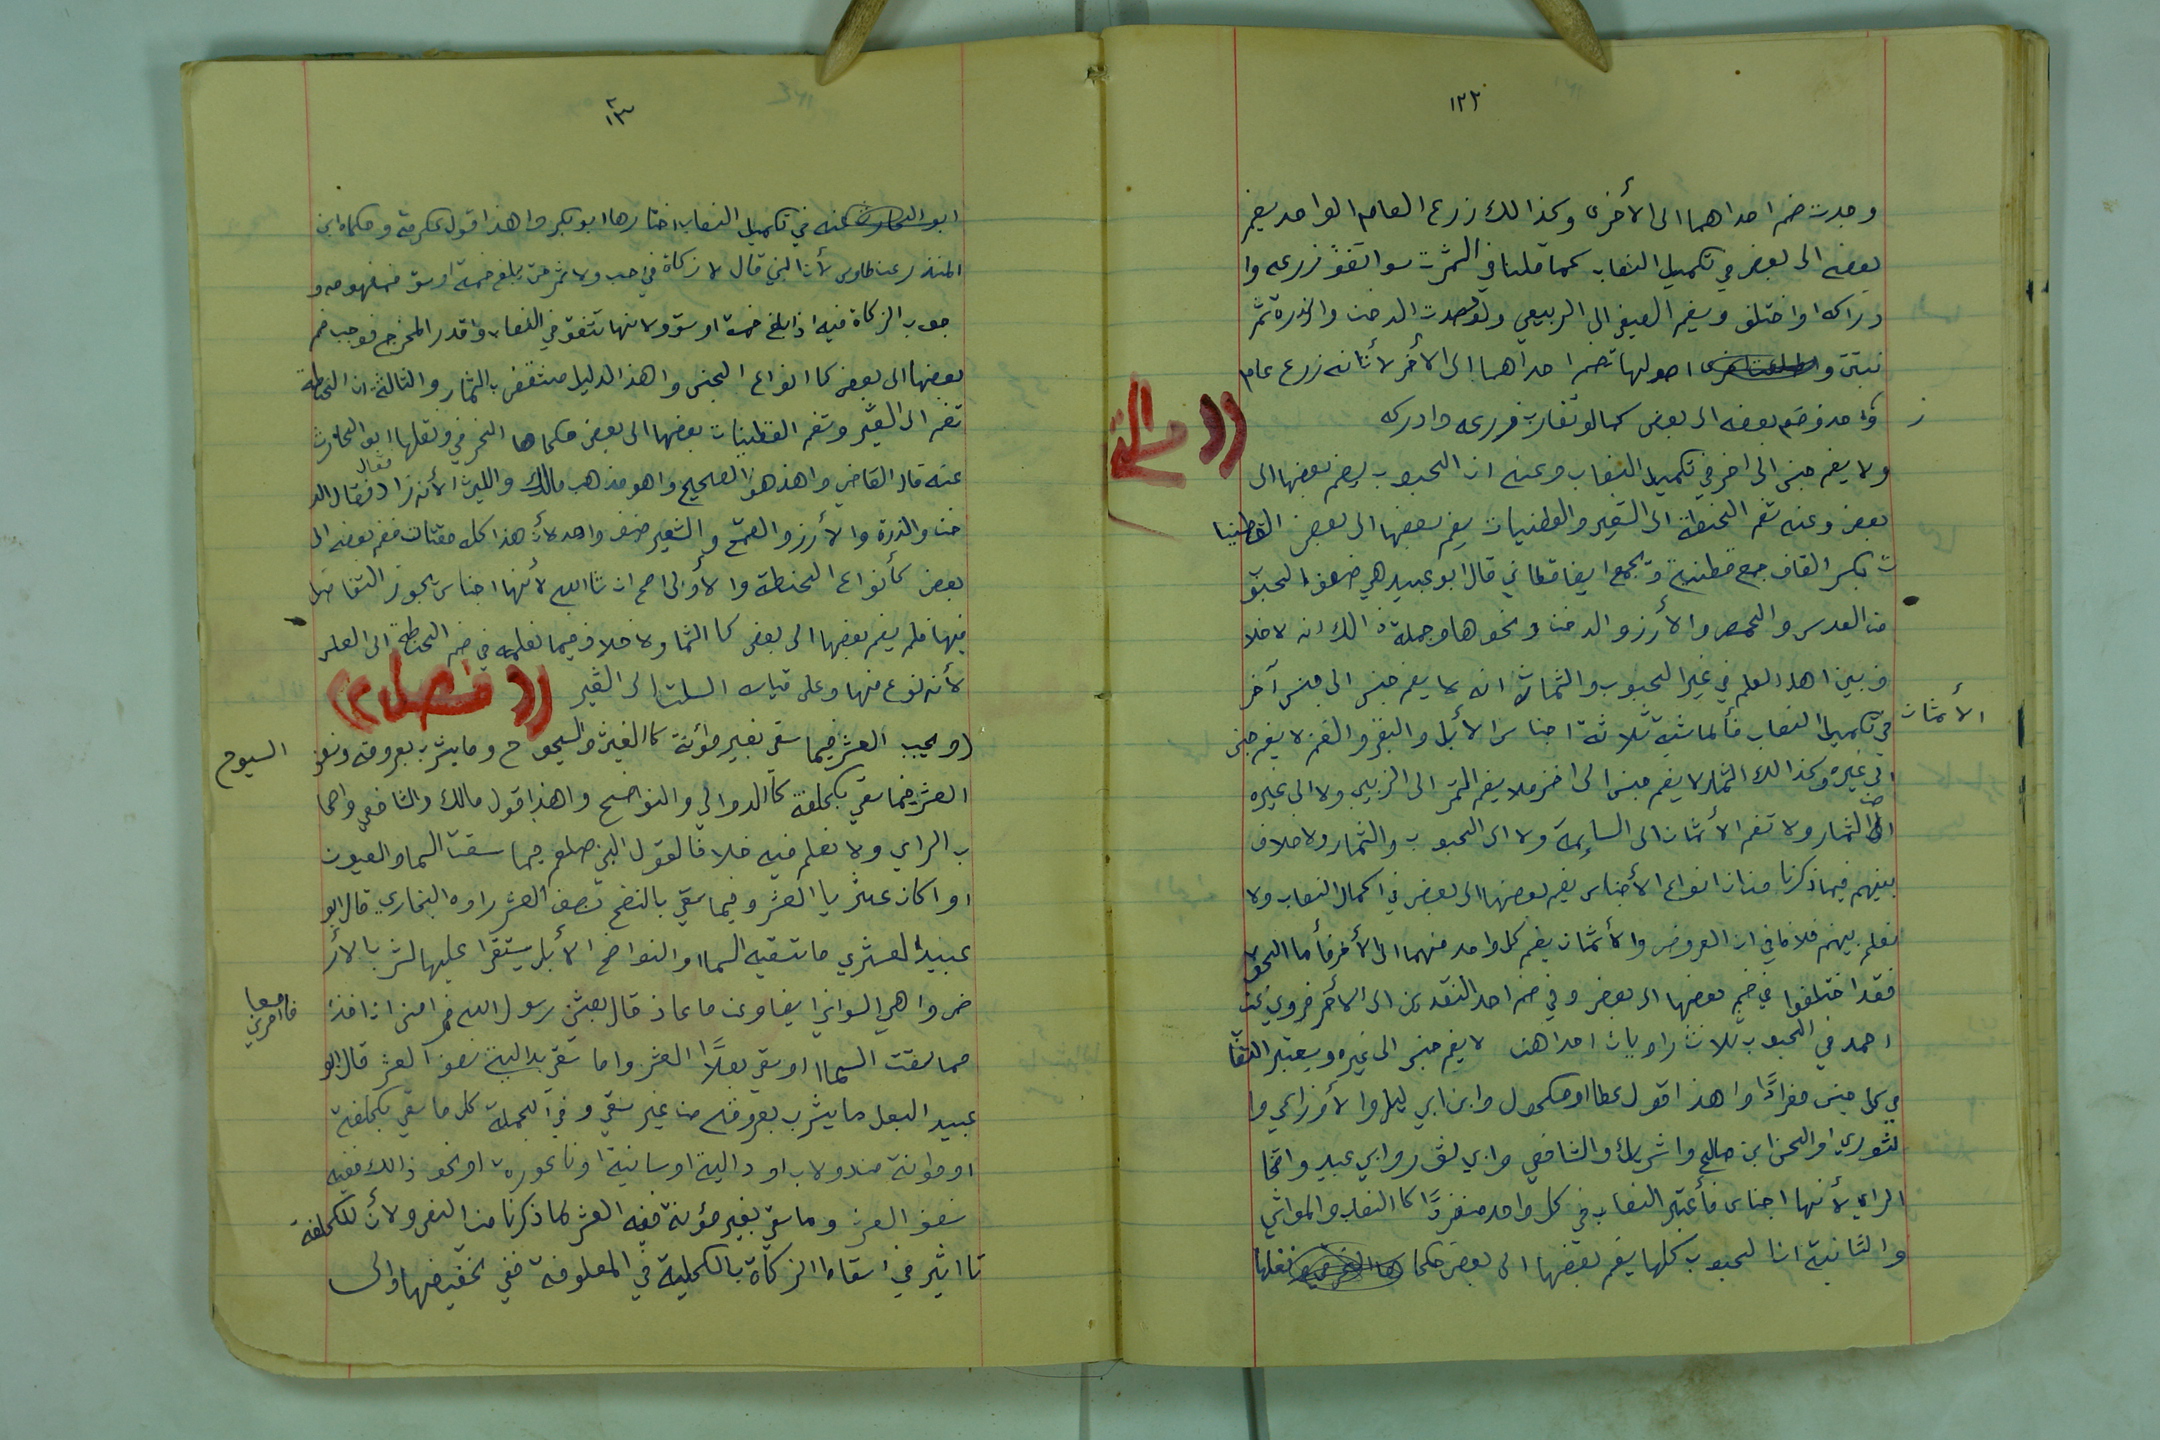 ١٢٢
وجدت ضم احداهما الى الأخرى وكذالك زرع العام الواحد يضم
بعضه الى بعض في تكميل النصاب كما قلنا في الثمرت سوا تفق زرعه وا
دراكه او اختلف ويضم الصيفي الى الربيعي ولو حصدت الدخن والذرة ثم
نبتت اصولها تضم احداهما الى الأخر لأنانه زرع عام
واحد فضم بعضه الى بعض كما لو تقارب زرعه وادركه
ز
((مسالة
ولا يضم جنس الى اخر في تكميل النصاب وعنه ان الحبوب يضم بعضها الى
بعض وعنه تضم الحنطة الى الشعير والقطنيات يضم بعضها الى بعض القطينيا
ت بكسر القاف جمع قطنية وتجمع ايضا قطاني قال ابو عبيد هي صنوف الحبوب
من العدس والحمص والأرز والدخن ونحوها وجملة ذالك انه لاخلا
ف بين اهل العلم في غير الحبوب والثمان انه لا يضم جنس الى جنس آخر
الأثمان
في تكميل النصاب فألماشية ثلاثة اجناس الأبل والبقر والغنم لا يضم جنس
الى غيره وكذالك الثمار لا يضم جنس الى اخر فلا يضم التمر الى الزبيب ولا الى غيره
من الثمار ولا تضم الأثمان الى السايمة ولا الى الحبوب والثمار ولا خلاف
بينهم فيما ذكرنا من ان انواع الأجناس يضم بعضها الى بعض في اكمال النصاب ولا
نعلم بينهم خلافا في ان العروض والأثمان يضم كل واحد منهما الى الأخر فأما الحبوب
فقد اختلفوا في ضم بعضها الى بعض وفي ضم احد النقدين الى الأخر فروي عن
احمد في الحبوب ثلاث راويات احداهن لا يضم جنس الى غيره ويعتبر النصا
في كل جنس مفرادًا واهذا قول عطا ومكحول وابن ابي ليلى والأوزاعي وا
لثوري والحسن ابن صالح واشريك والشافعي وابي ثور وابي عبيد واصحا
الراي لأنها اجناس فأعتبر النصاب في كل واحد منفردًا كا الثمار والمواشي
والثانية ان الحبوب كلها يضم بعضها الى بعض حكا ها نقلها
١٢٣
ابو الحارث عنه في تكميل النصاب اختارها ابو بكر واهذا قول عكرمة وحكاه ابن
المنذر عن طاوس لأن النبي قال لا زكاة في حب ولا ثمر حتى يبلغ خمسة اوسق فمفهومه و
جوب الزكاة فيه اذا بلغ خمسة اوسق ولانها تتفق في النصاب واقدر المخرج فوجب ضم
بعضها الى بعض كا انواع الجنس واهذا الدليل منتقض بالثمار والثالثة ان الحنطة
تضم الى الشعير وتضم القطنيات بعضها الى بعض حكاها الخرقي ونقلها ابو الحارث
عنه قال القاضي واهذا هو الصحيح واهو مذهب مالك والليث الأنه زاد فقال الد
فقال
خن والذرة والأرز والقمح والشعير صنف واحد لأن هذا كله مقتات فضم بعضه الى
بعض كأنواع الحنطة والأولى اصح ان شا الله لأنها اجناس يجوز التفاضل
فيها فلم يضم بعضها الى بعض كا الثما ولا خلاف فيما نعلمه في ضم الحنطة الى العلس
لأنه نوع منها وعلى قياسه السلت الى الشعير ((فصل))
(ويجب العشر فيما سقي بغير مؤنة كا الغيث والسيحوح وما يشرب بعروقه ونصف
السيوح
العشر فيما سقي بكلفة كا الدوالي والنواضح واهذا قول مالك والشافعي واصحا
ب الراي ولا نعلم فيه خلافا لقول النبي صلعم فيما سقت السما والعيون
او اكان عثريا العشر وفيما سقي بالنضح نصف العشر راوه البخاري قال ابو
عبيد العثري ما تسقيه السما والنواضح الأبل يستقا عليها لشرب الأر
ض واهي السواني ايضا وعن ماعاذ قال بعثني رسول الله فامرني ان اخذ
معا
فاامرني
مما سقت السما او سقي بعلًا العشر واما سقي بدالية نصف العشر قال ابو
عبيد البعل ما يشرب بعروقه من غير سقي وفي الجملة كل ما سقي بكلفة
او موانة من دولاب او دالية او سانية او ناعورة او نحو ذالك ففيه
نصف العشر وما سقي بغير مؤنة ففيه العشر لما ذكرنا من النص ولأن للكلفة
تااثير في اسقاط الزكاة بالكلية في المعلوفة ففي تخفيضها والى